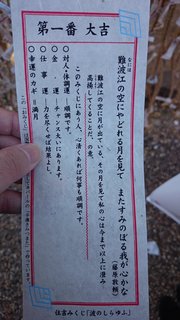 第一番 大吉
難波江の空にやどれる月を見て
なには
またすみのぼる我が心かな
(藤原教頼)
難波江の空に月が出ている。その月を見て私の心は今まで以上に澄み
高揚してくることだ、の意。
このみくじにあう人、心清くあれば何事も順調です。
○対人・体調運―順調です。
○金運―チャンス大いにあります。
○仕事運―力を尽くせば結果よし。
○幸運のカギ=満月
住吉みくじ「波のしらゆふ」